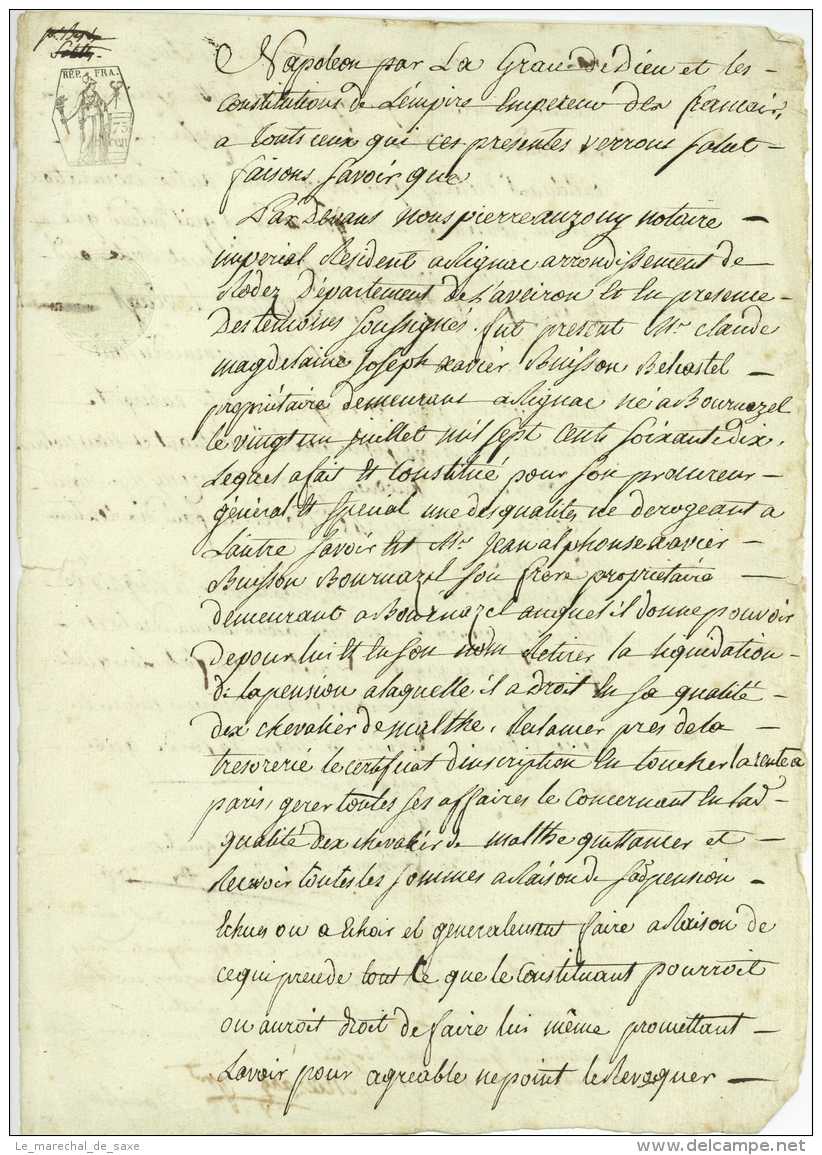 RÉP. FRA.
75
Napoleon par La Grace de Dieu et les
constitutions de L'empire Empereur des francais,
a touts ceux qui ces presentes verront salut
faisons savoir que
Par Devant nous pierre auzouy notaire
imperial Resident a Rignac arrondissement de
Rodez Département de L'aveiron Et En presence
Des temoins soussignés. fut present Mr. claude
magdelaine Joseph xavier Buisson Belcastel
propriétaire demeurant a Rignac né a Bournazel
le vingt un juillet mil sept cents soixante dix,
Lequel a fait Et Constitué pour son procureur
général Et special une des qualités ne derogeant a
L'autre savoir Est Mr. Jean alphonse xavier
Buisson Bournazel son frere propriétaire
demeurant a Bournazel auquel il donne pouvoir
de pour lui Et En son nom Retirer la liquidation
de la pension a laquelle il a droit En sa qualité
dex chevalier de malthe, Reclamer pres de la
tresorerié le certificat d'inscription En toucher la rente a
paris, gerer toutes ses affaires le concernant En lad.
qualité dex chevalier de malthe quittancer et
Recevoir toutes les sommes a Raison de sad. pension
Echues ou a Echoir et generalement faire a Raison de
ce qui precede tout Ce que le Constituant pourroit
ou auroit droit de faire lui même promettant
L'avoir pour agreable ne point le Revoquer
Le_marechal_de_saxe
delcampe.net